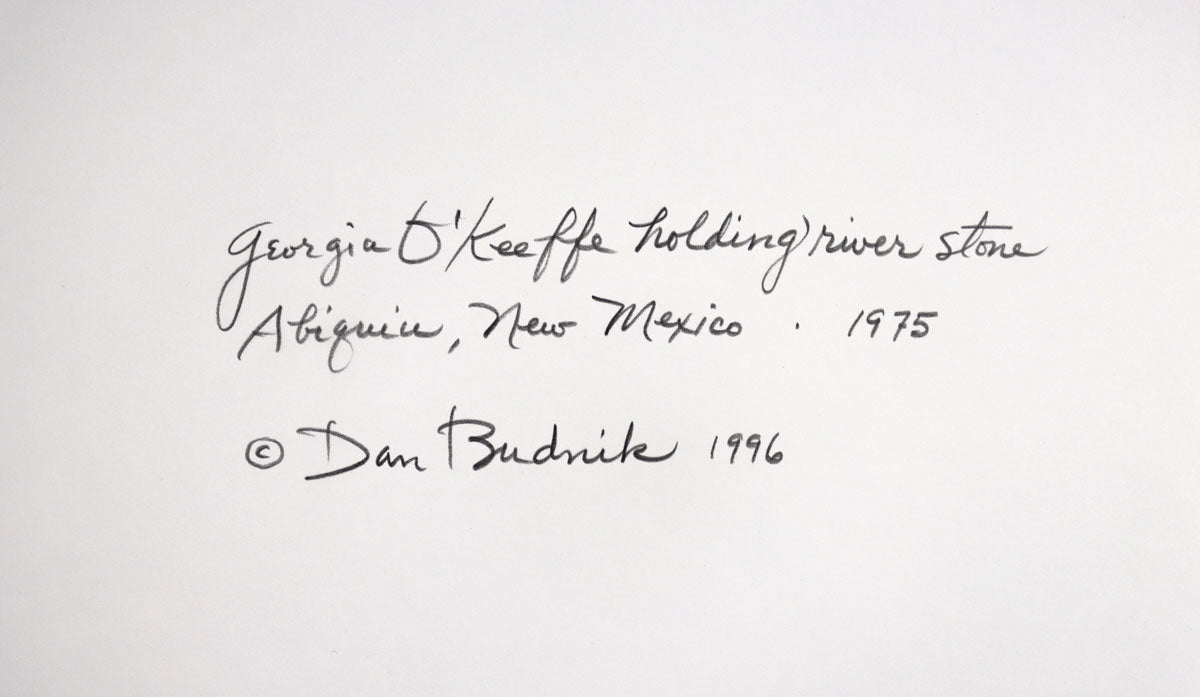 Georgia O'Keeffe holding river stone
Abiquiu, New Mexico . 1975
© Dan Budnik 1996